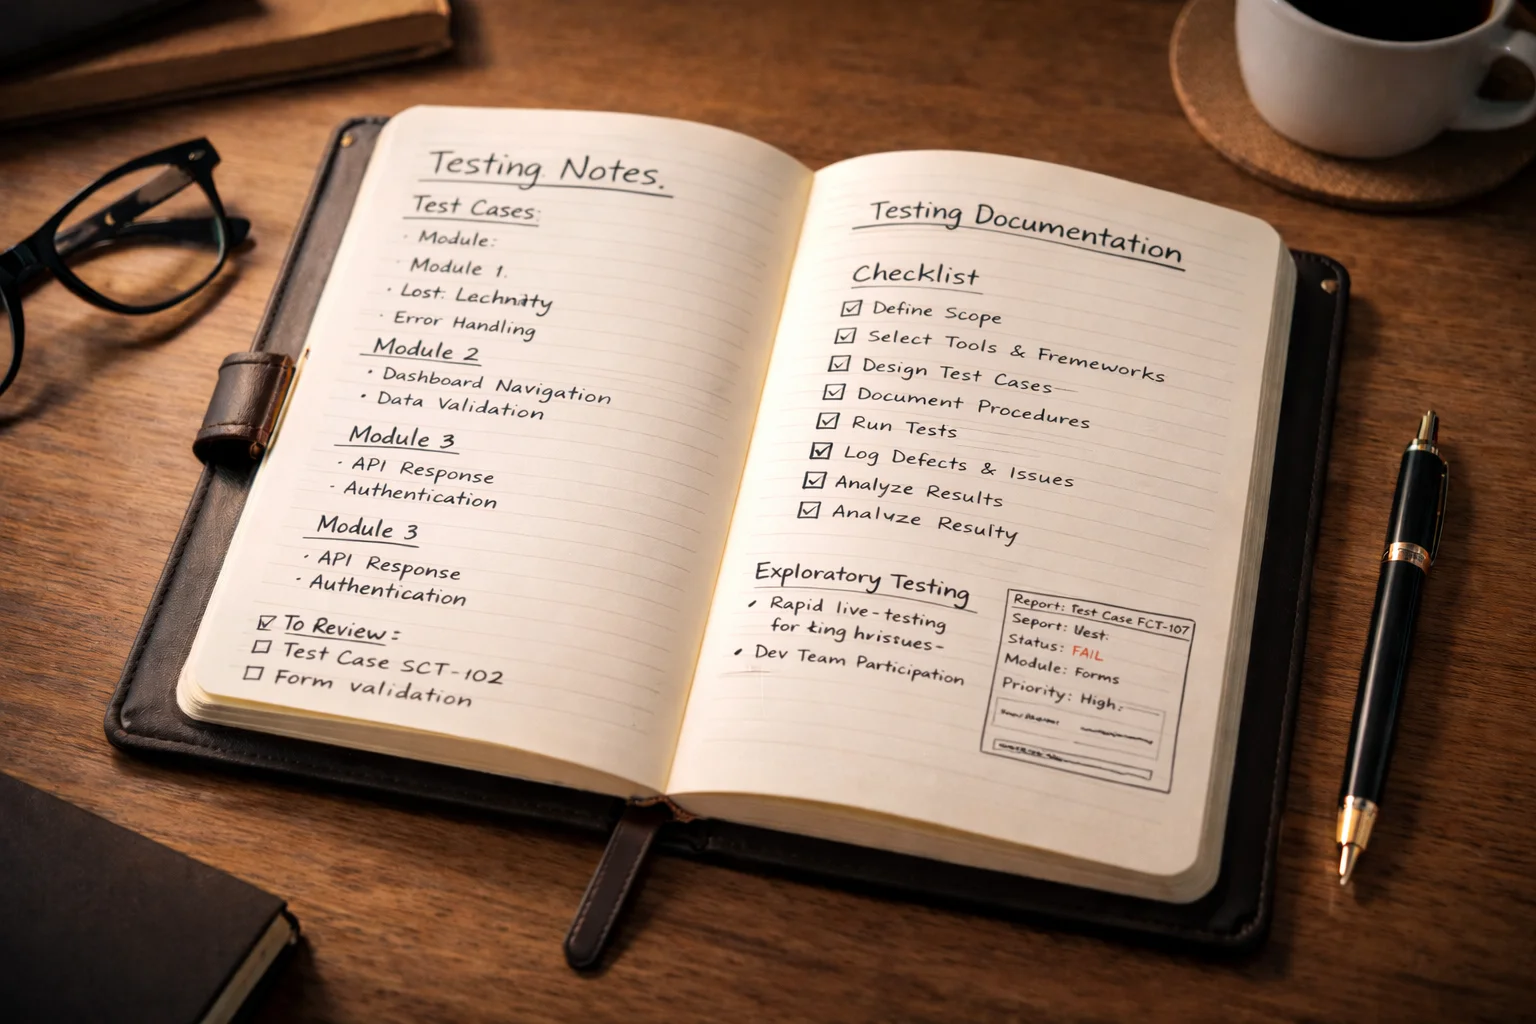 Testing Notes.
Test Cases:
· Module:
· Module 1.
· Lost: Lechnitty
· Error Handling
Module 2
· Dashboard Navigation
· Data Validation
Module 3
· API Response
· Authentication
Module 3
· API Response
· Authentication
☑ To Review:
☐ Test Case SCT-102
☐ Form validation
Testing Documentation
Checklist
☑ Define Scope
☑ Select Tools & Fremeworks
☑ Design Test Cases
☑ Document Procedures
☑ Run Tests
☑ Log Defects & Issues
☑ Analyze Results
☑ Analyze Resulty
Exploratory Testing
• Rapid live-testing
for ting hrissues-
• Dev Team Participation
Report: Test Case FCT-107
Seport: West:
Status: FAIL
Module: Forms
Priority: High: